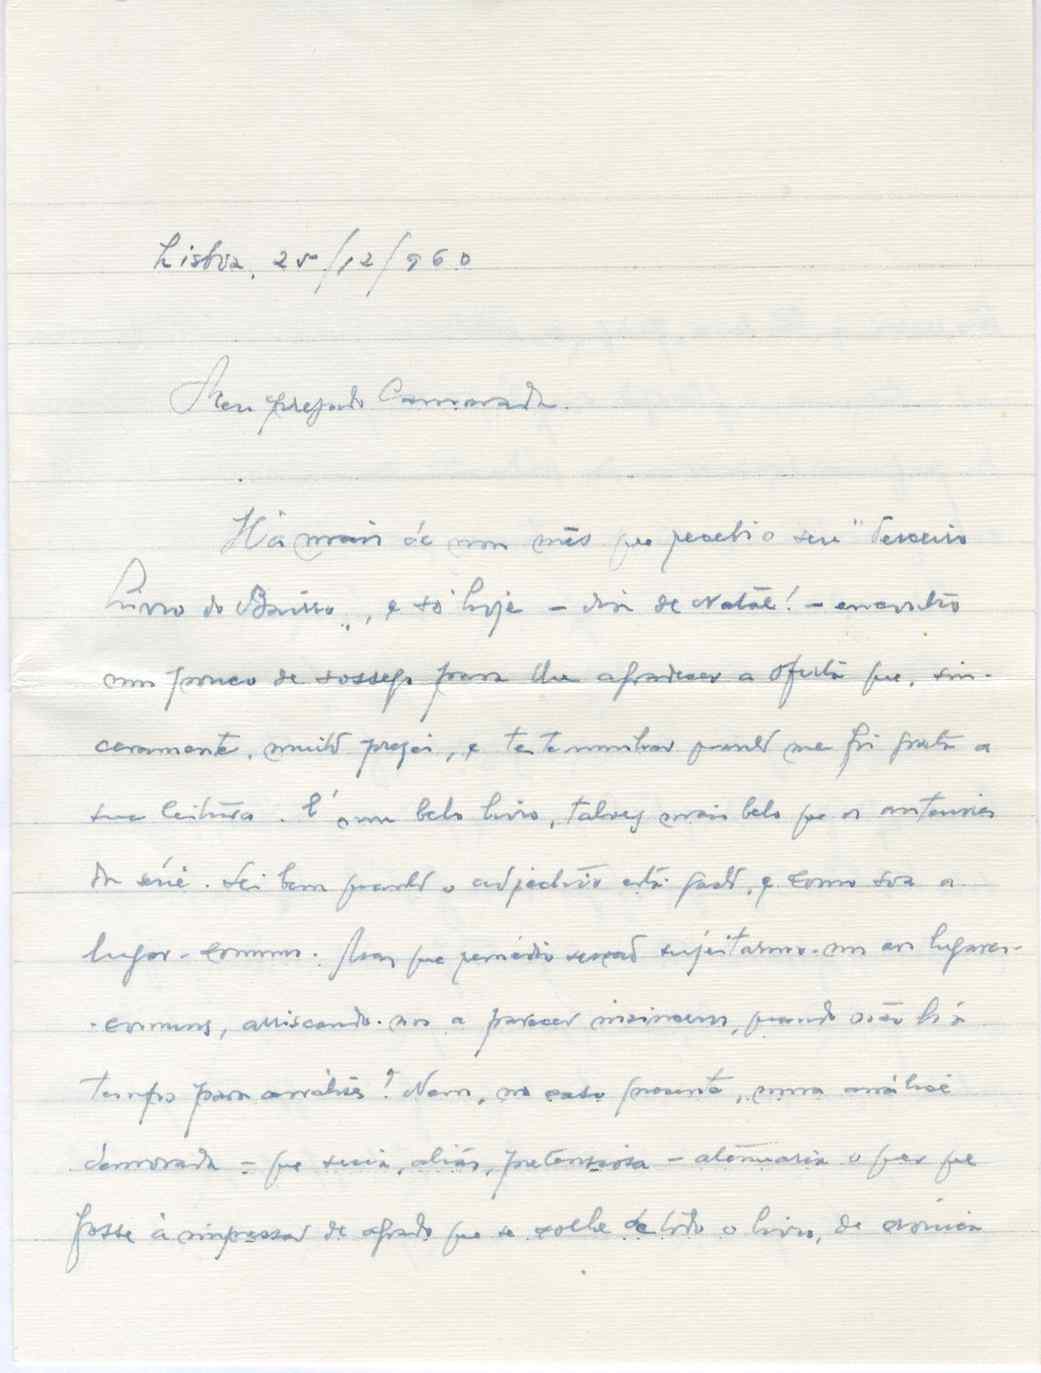 Lisboa, 25/12/960
Meu prezado Camarada.
Há mais de um mês que recebi o seu "Terceiro
Livro do Bairro", e só hoje - dia de Natal! - encontro
um pouco de sossego para lhe agradecer a oferta que, sin-
ceramente, muito prezei, e testemunhar quanto me foi grata a
sua leitura. É um belo livro, talvez mais belo que os anteriores
da série. Sei bem quanto o adjectivo está gasto, e como soa a
lugar-comum. Mas que remédio senão sujeitarmo-nos aos lugares-
-comuns, arriscando-nos a parecer insinceros, quando não há
tempo para análises? Nem, no caso presente, uma análise
demorada - que seria, aliás, pretensiosa - atenuaria o que quer que
fosse à impressão de agrado que se colhe de todo o livro, de